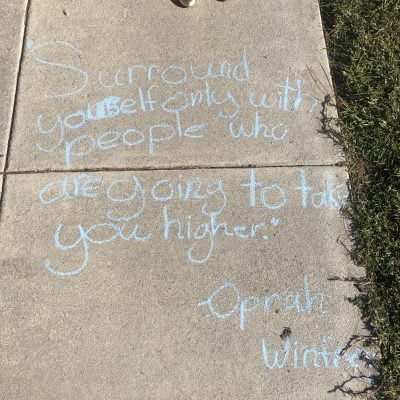 "Surround
yourself only with
people who
are going to take
you higher."
-Oprah
Winfrey